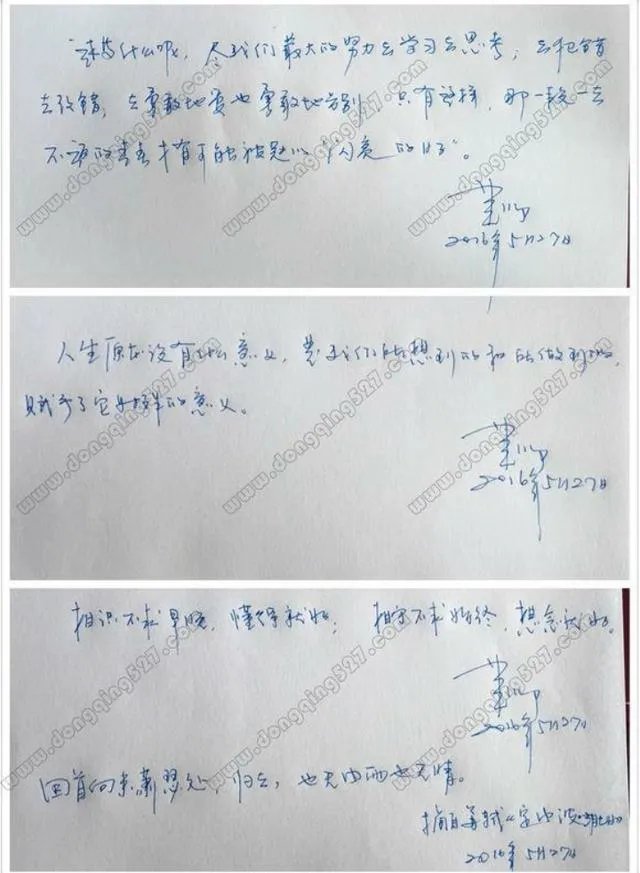 尽我们最大的努力去学习去思考,去犯错
去改错,去勇敢地爱也勇敢地告别,只有这样,那一段一去
不返的青春才有可能被题以“闪亮的
2016年5月27日
人生原本没有什么意义,是我们所想到的和所做到的,
赋予了它这样的意义。
2016年5月27日
相识不求早晚,懂得就好;相守不求始终,想念就好。
2016年5月27日
回首向来萧瑟处,归去,也无风雨也无情。
摘自苏轼《定风波
2016年5月27日
www.dongqing527.com